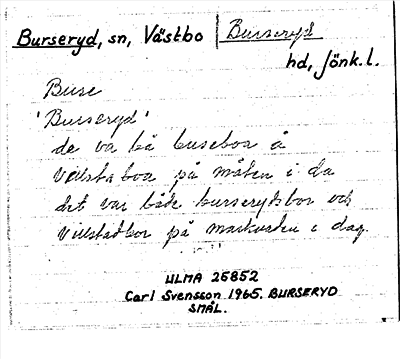 Burseryd, sn, Västbo Burseryd
hd, Jönk.l.
Buse
'Burseryd'
de va bå buseboa å
vallstaboa på måten i da
det var både burserydsbor och
Villstadbor på marknaden i dag.
ULMA 25852
Carl Svensson 1965. BURSERYD
SMÅL.